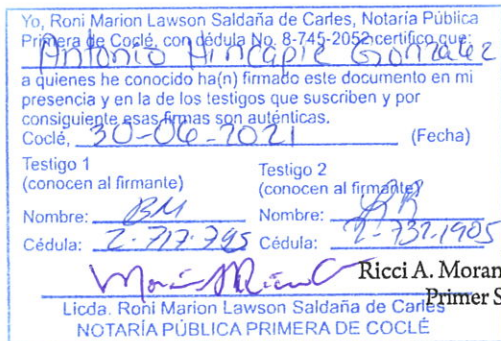 Yo, Roni Marion Lawson Saldaña de Carles, Notaría Pública
Primera de Coclé, con cédula No. 8-745-2052 certifico que:
Antonio Hincapie Gonzalez
a quienes he conocido ha(n) firmado este documento en mi
presencia y en la de los testigos que suscriben y por
consiguiente esas firmas son auténticas.
Coclé, 30-06-2021 (Fecha)
Testigo 1
(conocen al firmante)
Nombre: BM
Cédula: 2-717-795
Testigo 2
(conocen al firmante)
Nombre:
Cédula: 2-732-1905
Ricci A. Moran
Primer S
Licda. Roni Marion Lawson Saldaña de Carles
NOTARÍA PÚBLICA PRIMERA DE COCLÉ